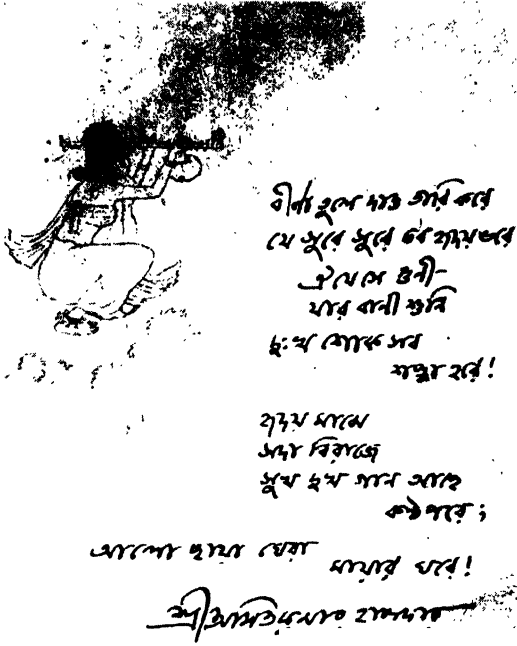 বীণা তুলে দাও তারি করে
যে সুরে সুরে তব হৃদয় ভরে
ঐ যে সে গুণী-
যার বাণী শুনি
দুঃখ শোক সব
শঙ্কা হরে!
হৃদয় মাঝে
সদা বিরাজে
সুখ দুখ গান আছে
কণ্ঠ পরে;
আলো ছায়া ঘেরা
মায়ার ঘরে!
শ্রীঅসিতকুমার হালদার